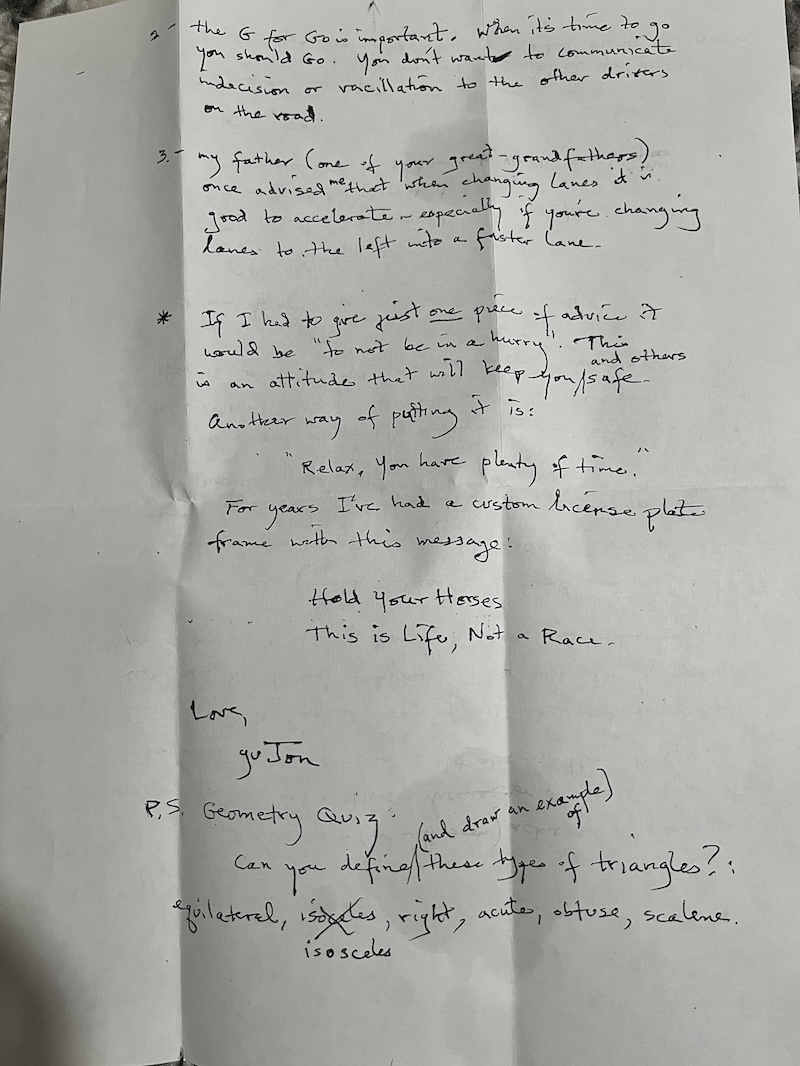 2- the G for Go is important. When it's time to go
you should Go. You don't want to communicate
indecision or vacillation to the other drivers
on the road.
3.- my father (one of your great-grandfathers)
once advised me that when changing lanes it is
good to accelerate - especially if you're changing
lanes to the left into a faster lane.
* If I had to give just one piece of advice it
would be "to not be in a hurry". This
is an attitude that will keep you/safe.
and others
Another way of putting it is:
"Relax, you have plenty of time."
For years I've had a custom license plate
frame with this message:
Hold Your Horses
This is Life, Not a Race.
Love,
guJon
P.S. Geometry Quiz:
(and draw an example of)
Can you define/these types of triangles?:
equilateral, isoceles, right, acute, obtuse, scalene.
isosceles